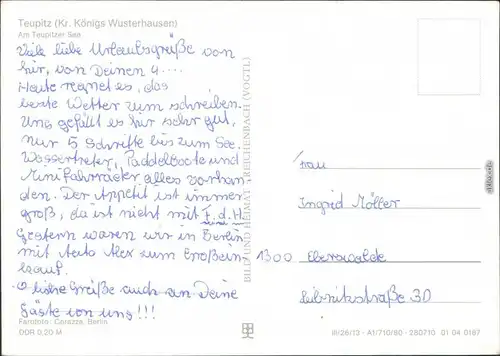 Teupitz (Kr. Königs Wusterhausen)
Am Teupitzer See
Viele liebe Urlaubsgrüße von
hir, von Deinen 4....
Heute regnet es, das
beste Wetter zum schreiben.
Uns gefällt es hir sehr gut,
nur 5 Schritte bis zum See.
Wassertreter, Paddelboote und
Minifahrräder alles vorhan
den. Der Appetit ist immer
groß, da ist nicht mit F.d.H.
Gestern waren wir in Berlin
mit Auto Alex zum Großein
kauf.
liebe Grüße auch an Deine
Gäste von uns!!!
Farbfoto: Darazza, Berlin
DDR 0,20 M
BILD UND HEIMAT REICHENBACH (VOGTL)
Frau
Ingrid Möller
1300 Eberswalde
Leibnizstraße 3D
III/26/13 · A1/710/80 · 280710 01 04 0167